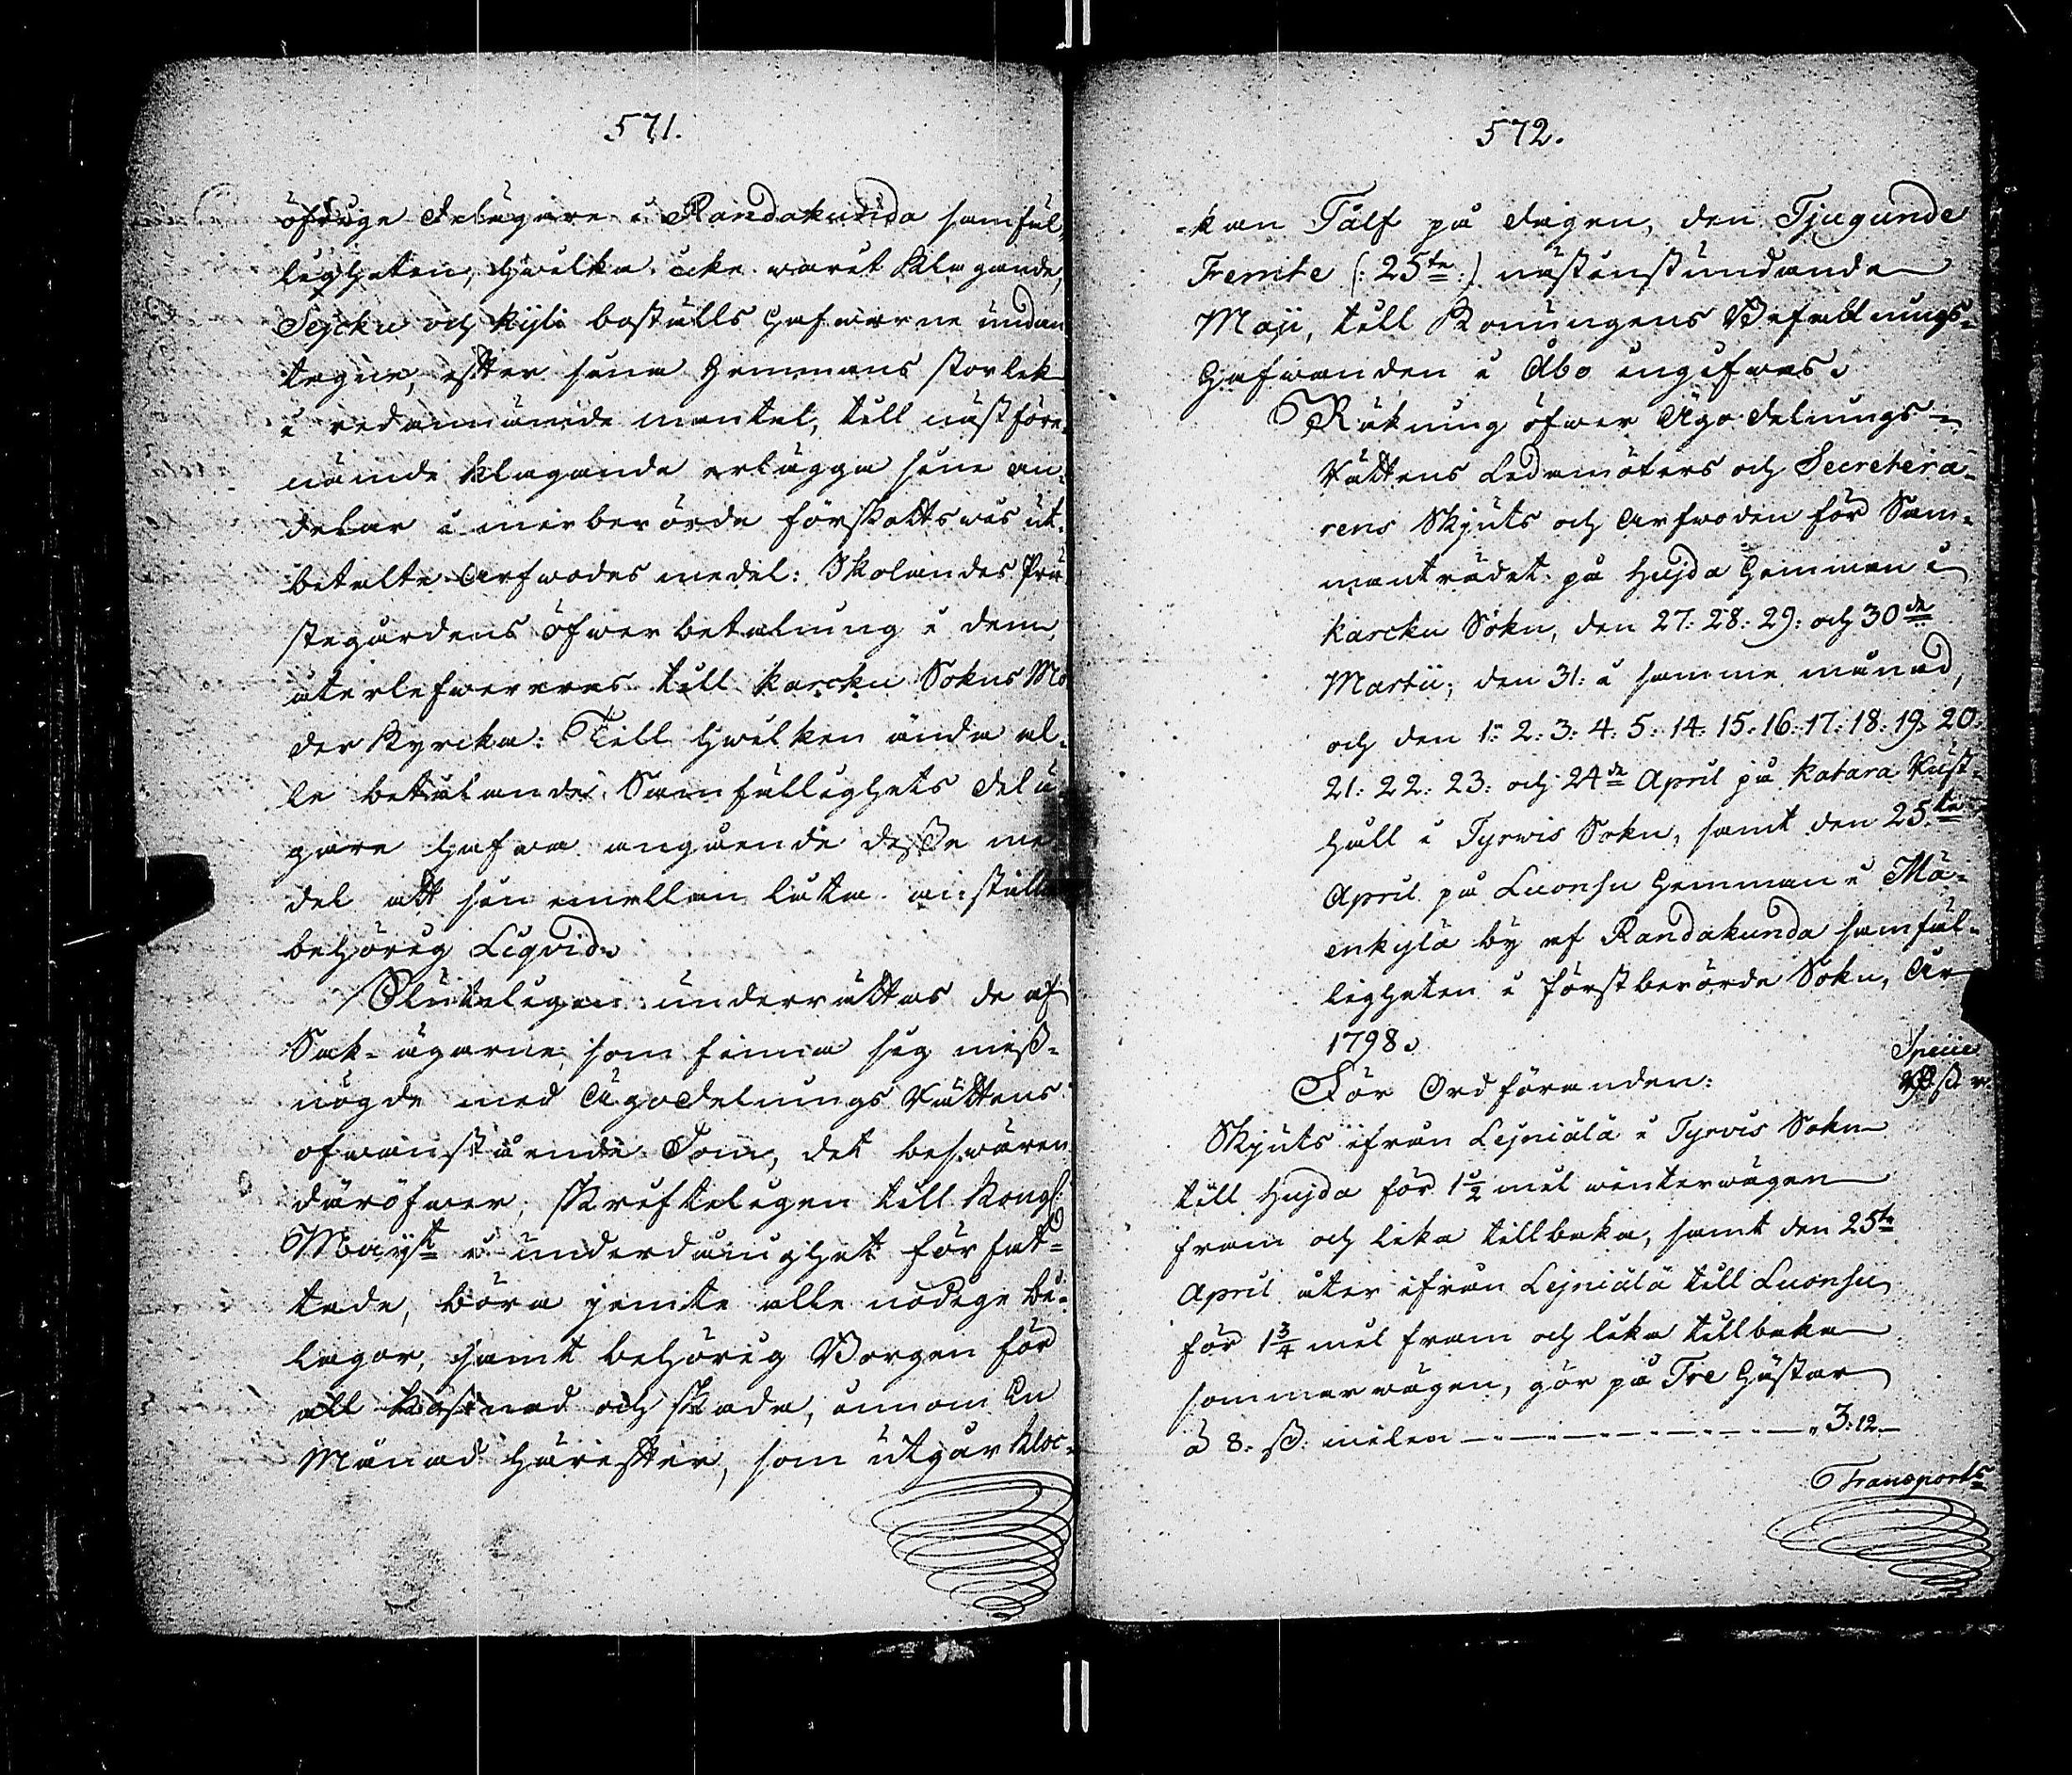 571.
öfrige delägare i Randakunda samfäl¬
ligheten, hwilka icke warit Klagande,
Sejcku och Kyli boställs Hafwarne undan
tagne, efter sina Hemmans storlek
i redannämnde mantal, till nästföre¬
nämde Klagande erlägga sine an¬
delar i merberörde förskottswis ut¬
betalte Arfwodes medel: Skolandes Prä
stegårdens öfwerbetalning i dem
återlefwereras till Karcku Sokns Mo
der Kyrcka: Till hwilken ända al¬
le betalande Samfällighets delä
gare hafwa angående dessa me
del att sin emellan låta anställa
behörig Liqvid.
Sluteligen underrättas de af
Sak-ägarne, som finna sig miss¬
nögde med Ägodelnings Rättens
ofwanstående Dom, det beswären
däröfwer, skrifteligen till Kongl:
Mayst i underdånighet förfat¬
tade, böra jemte alla nödige bi¬
lagor, samt behörig Borgen för
all kostnad och skada, innom En
Månad härefter, som utgår kloc¬
572.
-kan Tålf på dagen, den Tjugunde
Femte (: 25te :) nästinstundande
Maji, till Konungens Befallnings¬
Hafwanden i Åbo ingifwas.
Räkning öfwer Ägodelnings¬
Rättens Ledamöters och Secretera¬
rens Skjuts och Arfwoden för Sam¬
manträdet på Hujda Hemman i
Karcku Sokn, den 27: 28: 29: och 30de
Martii, den 31: i samma månad,
och den 1: 2: 3: 4: 5: 14: 15: 16: 17: 18: 19: 20:
21: 22: 23: och 24de April på Katara Rust¬
håll i Tyrwis Sokn, samt den 25te
April på Luonsu Hemman i Mä¬
enkylä by af Randakunda samfäl¬
ligheten i förstberörde Sokn, År
1798.
Specie
Rd s r.
För Ordföranden:
Skjuts ifrån Lejniälä i Tyrvis Sokn
till Hujda för 1 1/2 mil winterwägen
fram och lika tillbaka, samt den 25te
April åter ifrån Lejniälä till Luonsu
för 1 3/4 mil fram och lika tillbaka
sommarwägen, gör på Tre Hästar
à 8. s: milen — „ 3: 12. —
Transports